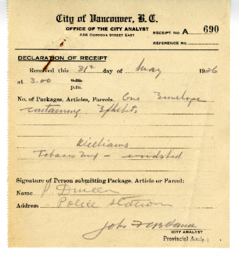 City of Vancouver, B.C.
OFFICE OF THE CITY ANALYST
RECEIPT No. A 690
REFERENCE No.
DECLARATION OF RECEIPT
Received this 21st day of May 1926
at 3.00 p.m.
No. of Packages, Articles, Parcels. One Envelope
containing 3
Williams
Signature of Person submitting Package, Article or Parcel:
Name
Address Police Station
CITY ANALYST
Provincial Analyst